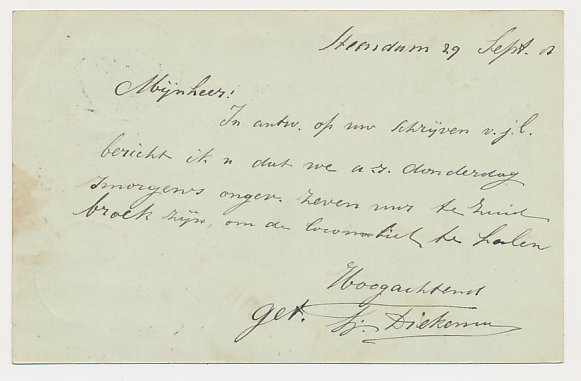 Steendam 29 Sept.
Mijnheer!
In antw. op uw schrijven v. j.l.
bericht ik u dat we a.s. donderdag
smorgens ongev. zeven uur te Zuid
broek zijn, om de locomotief te halen
Hoogachtend
get. Diekema